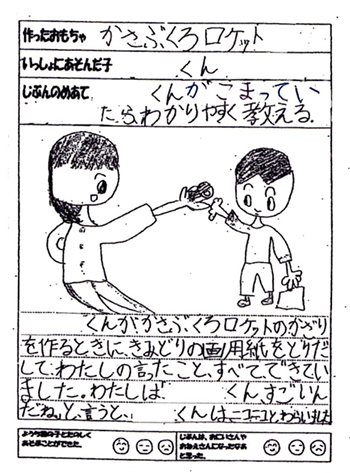 作ったおもちゃ かさぶくろロケット
いっしょにあそんだ子 くん
じぶんのめあて くんがこまってい
たら、わかりやすく教える。
くんがかさぶくろロケットのかざり
を作るときに、きみどりの画用紙をとりだ
して、わたしの言ったこと、すべてできてい
ました。わたしは、 くん、すごいん
だね。」と、言うと、 くんは、ニコニコと、わらいました
ようち園の子とたのしく じぶんは、おにいさんや
あそぶことができた。 おねえさんになったなあ
と思った。